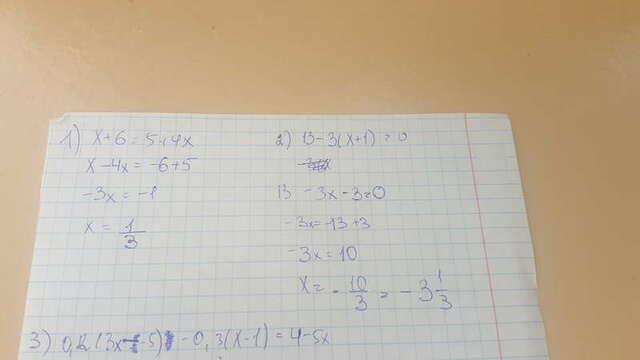 1) x+6=5+4x
x-4x=-6+5
-3x=-1
x=1/3
2) 13-3(x+1)=0
13-3x-3=0
-3x=-13+3
-3x=10
x=-10/3=-3 1/3
-0,3(x-1)=4-5x